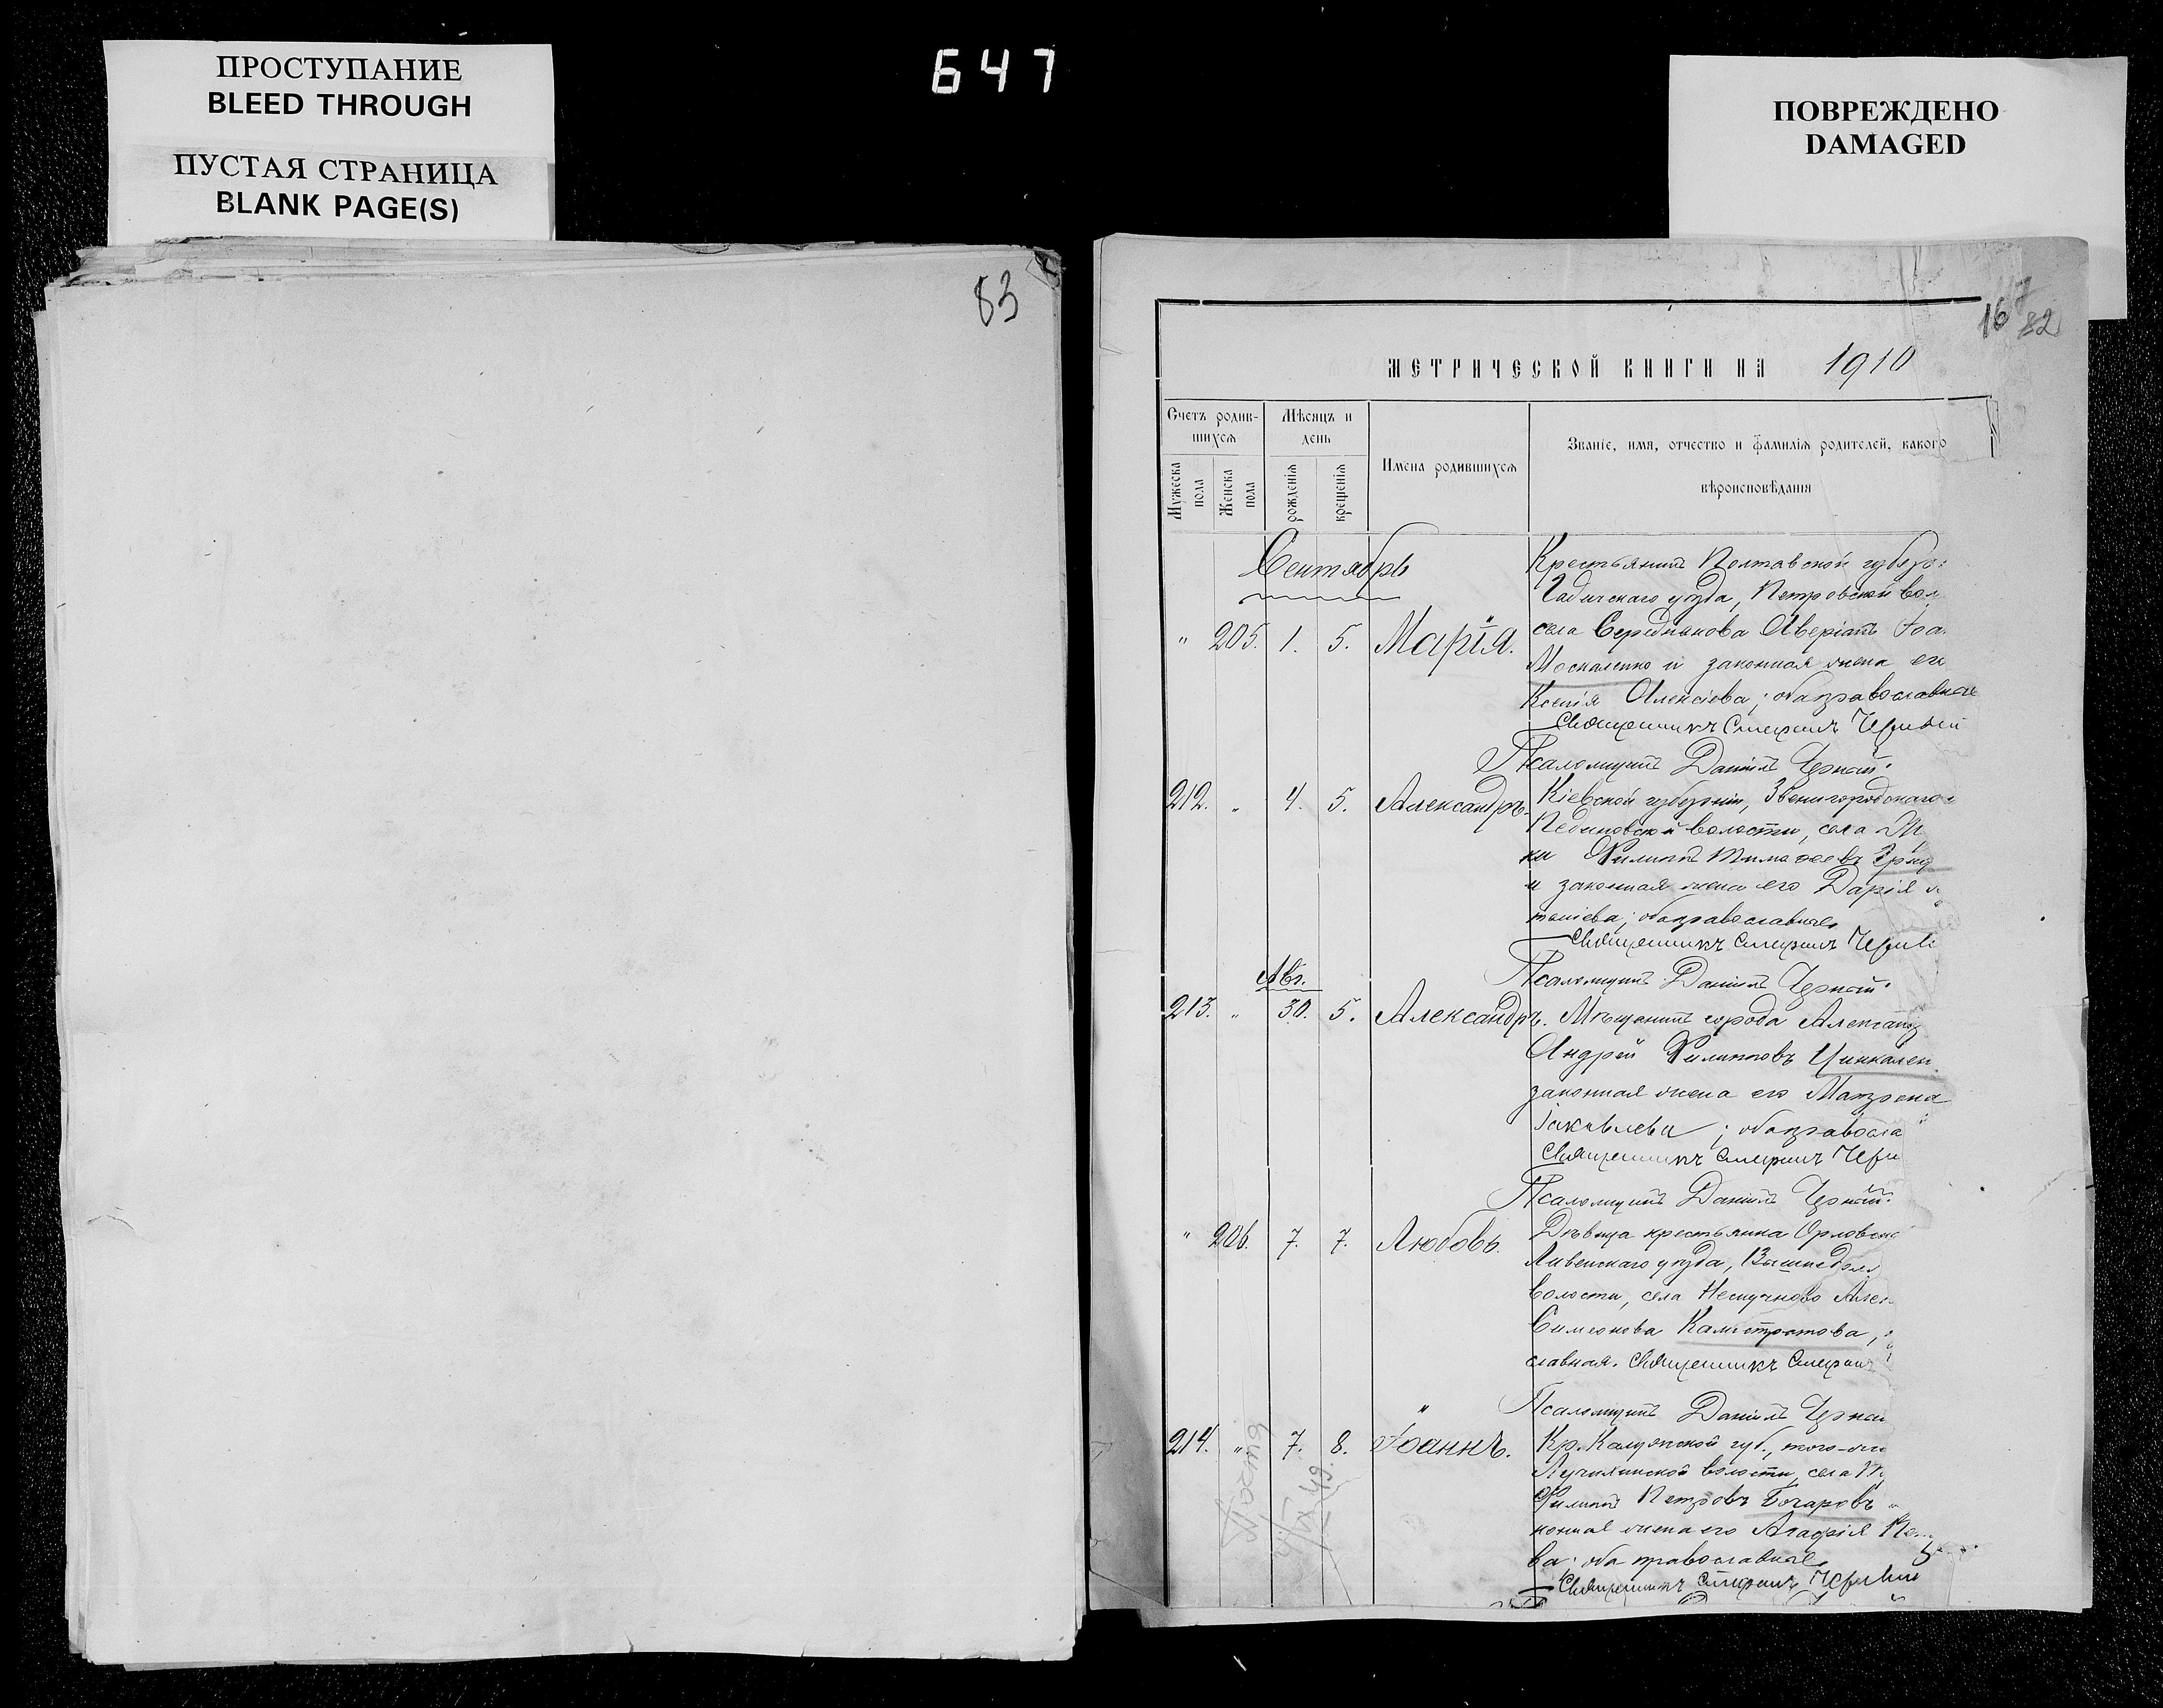 ПРОСТУПАНИЕ
BLEED THROUGH
ПУСТАЯ СТРАНИЦА
BLANK PAGE(S)
647
ПОВРЕЖДЕНО
DAMAGED
83
16
82
МЕТРИЧЕСКОЙ КНИГИ НА 1910
Счетъ родив-
шихся
Мѣсяцъ и
день
Имена родившихся
Званіе, имя, отчество и фамилія родителей, какого
вѣроисповѣданія
Мужеска
пола
Женска
пола
рожденія
крещенія
Сентябрь
Крестьянинъ Полтавской губерн
Гадячскаго уѣзда, Петровской вол
" 205. 1. 5. Марія.
села Середнякова Аверіанъ Іоа
Москаленко и законная жена его
Ксенія Алексіева; оба православные
Священникъ Стефанъ
Псаломщикъ Даніилъ Черный.
212. " 4. 5. Александръ.
Кіевской губерніи, Звенигородскаго
волости, села
ки Филиппъ Тимофеевъ
и законная жена его Дарія
теніева; оба православные
Священникъ Стефанъ
Псаломщикъ Даніилъ Черный.
Авг.
213. " 30. 5. Александръ.
Мѣщанинъ города Александ
Андрей Филипповъ Цинкален
законная жена его Матрона
Іаковлева; оба правосла
Священникъ Стефанъ
Псаломщикъ Даніилъ Черный.
" 206. 7. 7. Любовь.
Дѣвица крестьянка Орловско
Ливенскаго уѣзда,
волости, села Алек
Симеонова Калистратова,
славная. Священникъ Стефанъ
Псаломщикъ Даніилъ Черны
214. " 7. 8. Іоаннъ.
Кр. Калужской губ., того-же
Лучихинской волости, села
Филиппъ Петровъ Бочаровъ
конная жена его Агафія
ва; оба православные
Священникъ Стефанъ